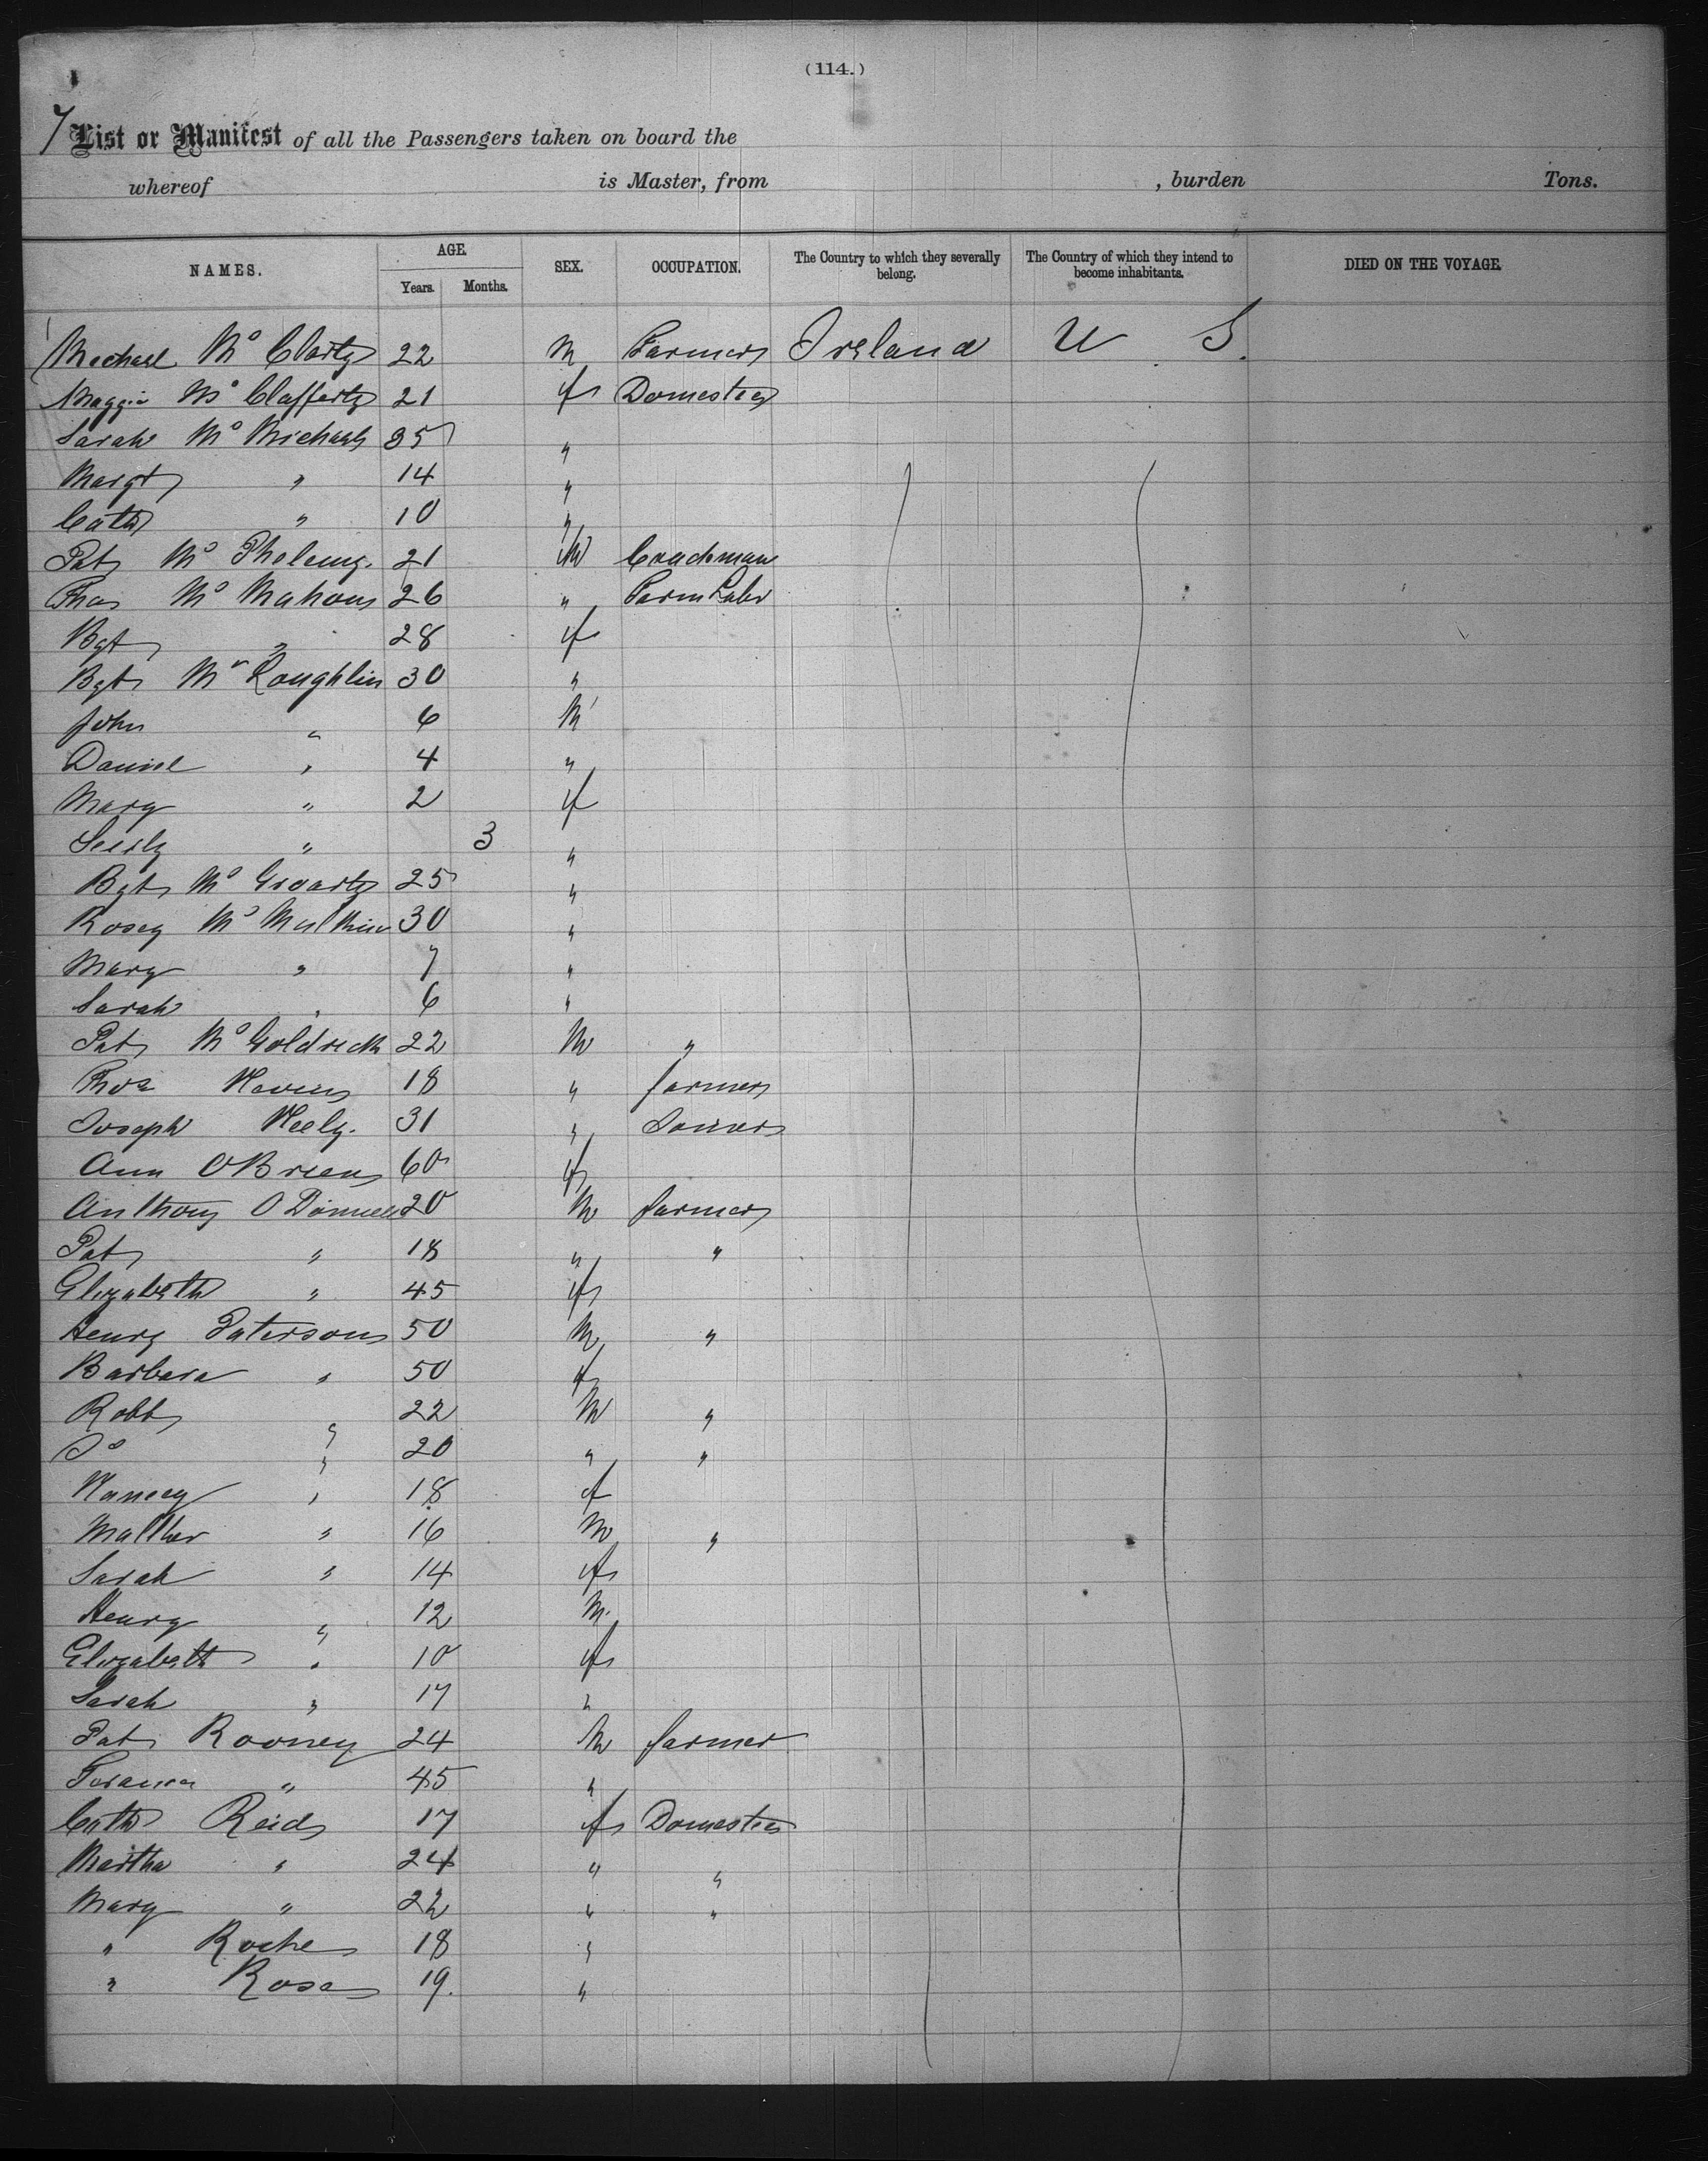 (114.)
7 List or Manifest of all the Passengers taken on board the
whereof is Master, from , burden Tons.
NAMES. AGE. SEX. OCCUPATION. The Country to which they severally belong. The Country of which they intend to become inhabitants. DIED ON THE VOYAGE.
Years. Months.
Michael Mc Clarty 22 M Farmer Ireland U S.
Maggie Mc Clafferty 21 f Domestic
Sarah Mc Michael 35 "
Margt " 14 "
Cath " 10 "
Pat Mc Pheleny. 21 M Coachman
Thos Mc Mahon 26 " Farm Labr
Bgt " 28 f
Bgt Mc Loughlin 30 "
John " 6 M
Daniel " 4 "
Mary " 2 f
" 3 "
Bgt Mc Groarty 25 "
Rosey Mc 30 "
Mary " 7 "
Sarah " 6 "
Pat Mc Goldrick 22 M "
Thos 18 " farmer
Joseph Neely. 31 " Joiner
Ann O Brien 60 f
Anthony O Donnell 20 M farmer
Pat " 18 " "
Elizabeth " 45 f
Henry Paterson 50 M "
Barbara " 50 f
Robt " 22 M "
Jo " 20 " "
Nancey " 18 f
" 16 M "
Sarah " 14 f
Henry " 12 M.
Elizabeth " 10 f
Sarah " 17 "
Pat Rooney 24 M farmer
" 45 "
Cath Reid 17 f Domestic
Martha " 24 " "
Mary " 22 " "
" Roche 18 "
" Rose 19. "